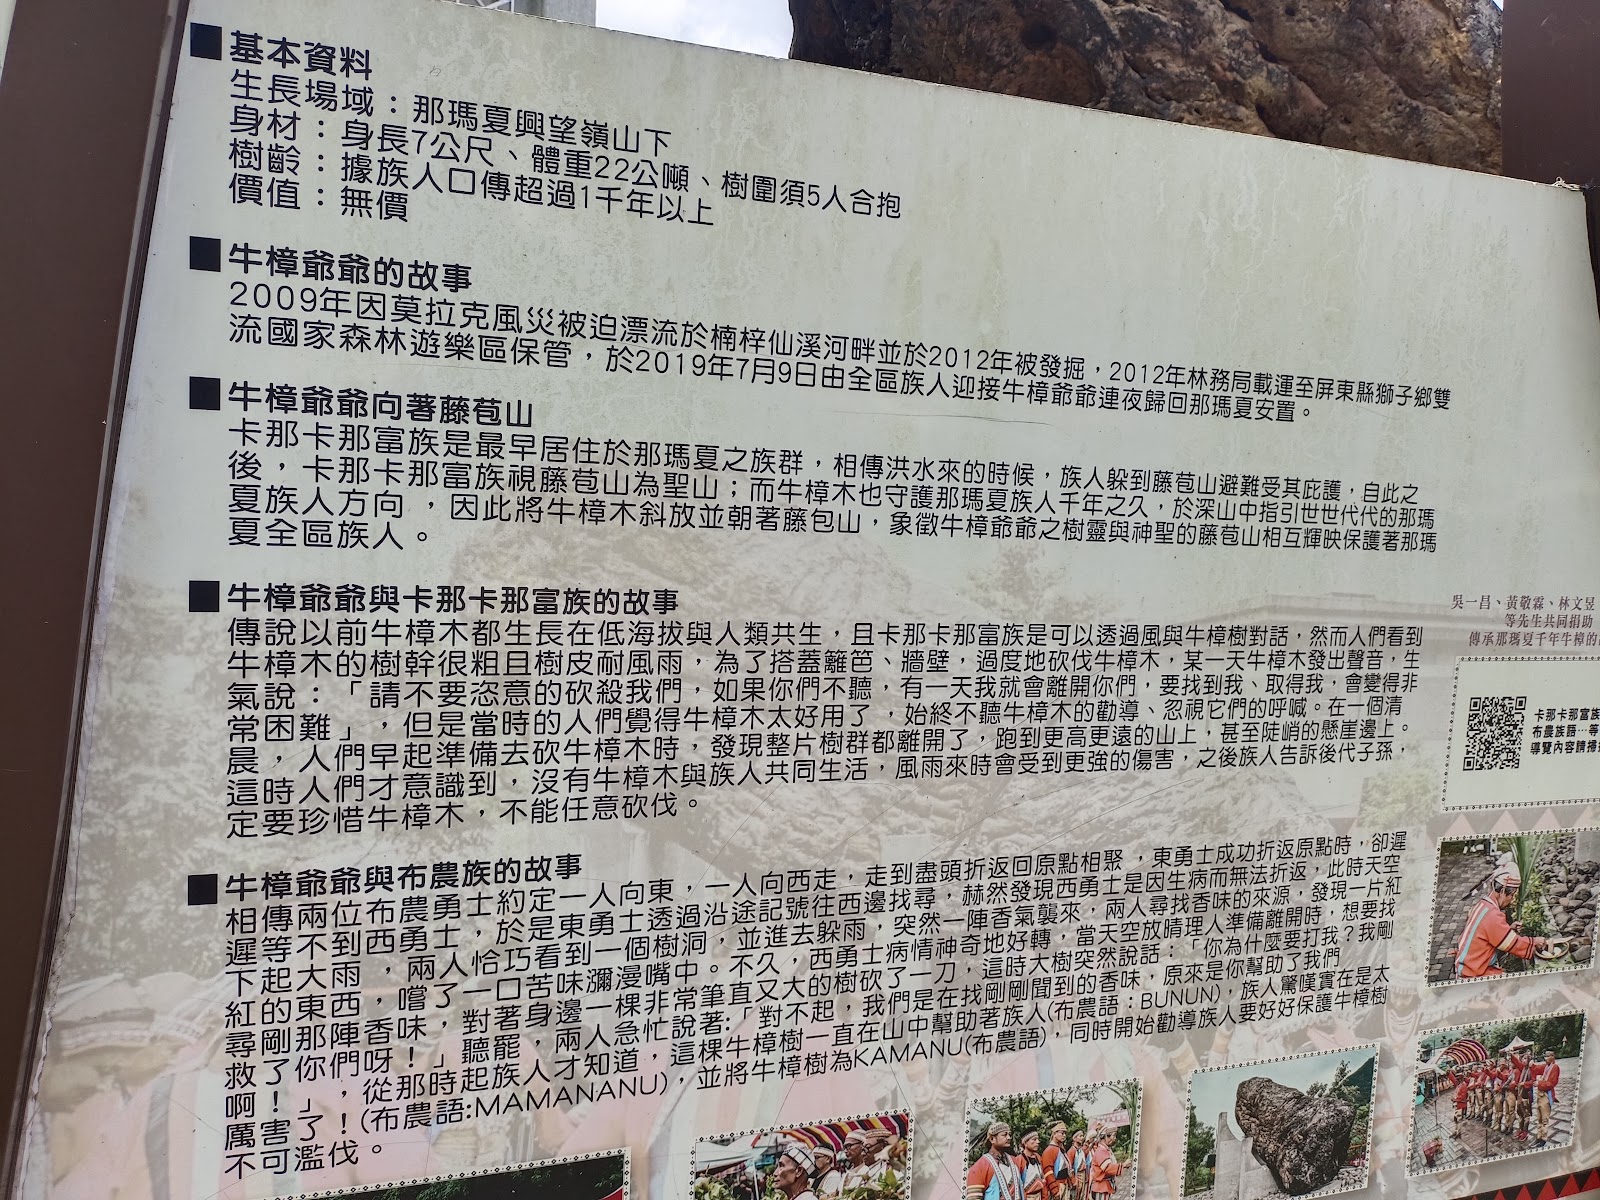 ■基本資料
生長場域：那瑪夏興望嶺山下
身材：身長7公尺、體重22公噸、樹圍須5人合抱
樹齡：據族人口傳超過1千年以上
價值：無價
■牛樟爺爺的故事
2009年因莫拉克風災被迫漂流於楠梓仙溪河畔並於2012年被發掘，2012年林務局載運至屏東縣獅子鄉雙
流國家森林遊樂區保管，於2019年7月9日由全區族人迎接牛樟爺爺連夜歸回那瑪夏安置。
■牛樟爺爺向著藤苞山
卡那卡那富族是最早居住於那瑪夏之族群，相傳洪水來的時候，族人躲到藤苞山避難受其庇護，自此之
後，卡那卡那富族視藤苞山為聖山；而牛樟木也守護那瑪夏族人千年之久，於深山中指引世世代代的那瑪
夏族人方向，因此將牛樟木斜放並朝著藤包山，象徵牛樟爺爺之樹靈與神聖的藤苞山相互輝映保護著那瑪
夏全區族人。
■牛樟爺爺與卡那卡那富族的故事
傳說以前牛樟木都生長在低海拔與人類共生，且卡那卡那富族是可以透過風與牛樟樹對話，然而人們看到
牛樟木的樹幹很粗且樹皮耐風雨，為了搭蓋籬笆、牆壁，過度地砍伐牛樟木，某一天牛樟木發出聲音，生
氣說：「請不要恣意的砍殺我們，如果你們不聽，有一天我就會離開你們，要找到我、取得我，會變得非
常困難」，但是當時的人們覺得牛樟木太好用了，始終不聽牛樟木的勸導、忽視它們的呼喊。在一個清
晨，人們早起準備去砍牛樟木時，發現整片樹群都離開了，跑到更高更遠的山上，甚至陡峭的懸崖邊上。
這時人們才意識到，沒有牛樟木與族人共同生活，風雨來時會受到更強的傷害，之後族人告訴後代子孫，
定要珍惜牛樟木，不能任意砍伐。
■牛樟爺爺與布農族的故事
相傳兩位布農勇士約定一人向東，一人向西走，走到盡頭折返回原點相聚，東勇士成功折返原點時，卻遲
遲等不到西勇士，於是東勇士透過沿途記號往西邊找尋，赫然發現西勇士是因生病而無法折返，此時天空
下起大雨，兩人恰巧看到一個樹洞，並進去躲雨，突然一陣香氣襲來，兩人尋找香味的來源，發現一片紅
紅的東西，嚐了一口苦味瀰漫嘴中。不久，西勇士病情神奇地好轉，當天空放晴理人準備離開時，想要找
尋剛那陣香味，對著身邊一棵非常筆直又大的樹砍了一刀，這時大樹突然說話：「你為什麼要打我？我剛
救了你們呀！」聽罷，兩人急忙說著:「對不起，我們是在找剛剛聞到的香味，原來是你幫助了我們
啊！」，從那時起族人才知道，這棵牛樟樹一直在山中幫助著族人(布農語：BUNUN)，族人驚嘆實在是太
厲害了！(布農語:MAMANANU)，並將牛樟樹為KAMANU(布農語)，同時開始勸導族人要好好保護牛樟樹
不可濫伐。
吳一昌、黃敬霖、林文昱
等先生共同捐助
傳承那瑪夏千年牛樟的
卡那卡那富族
布農族語…等
導覽內容請掃